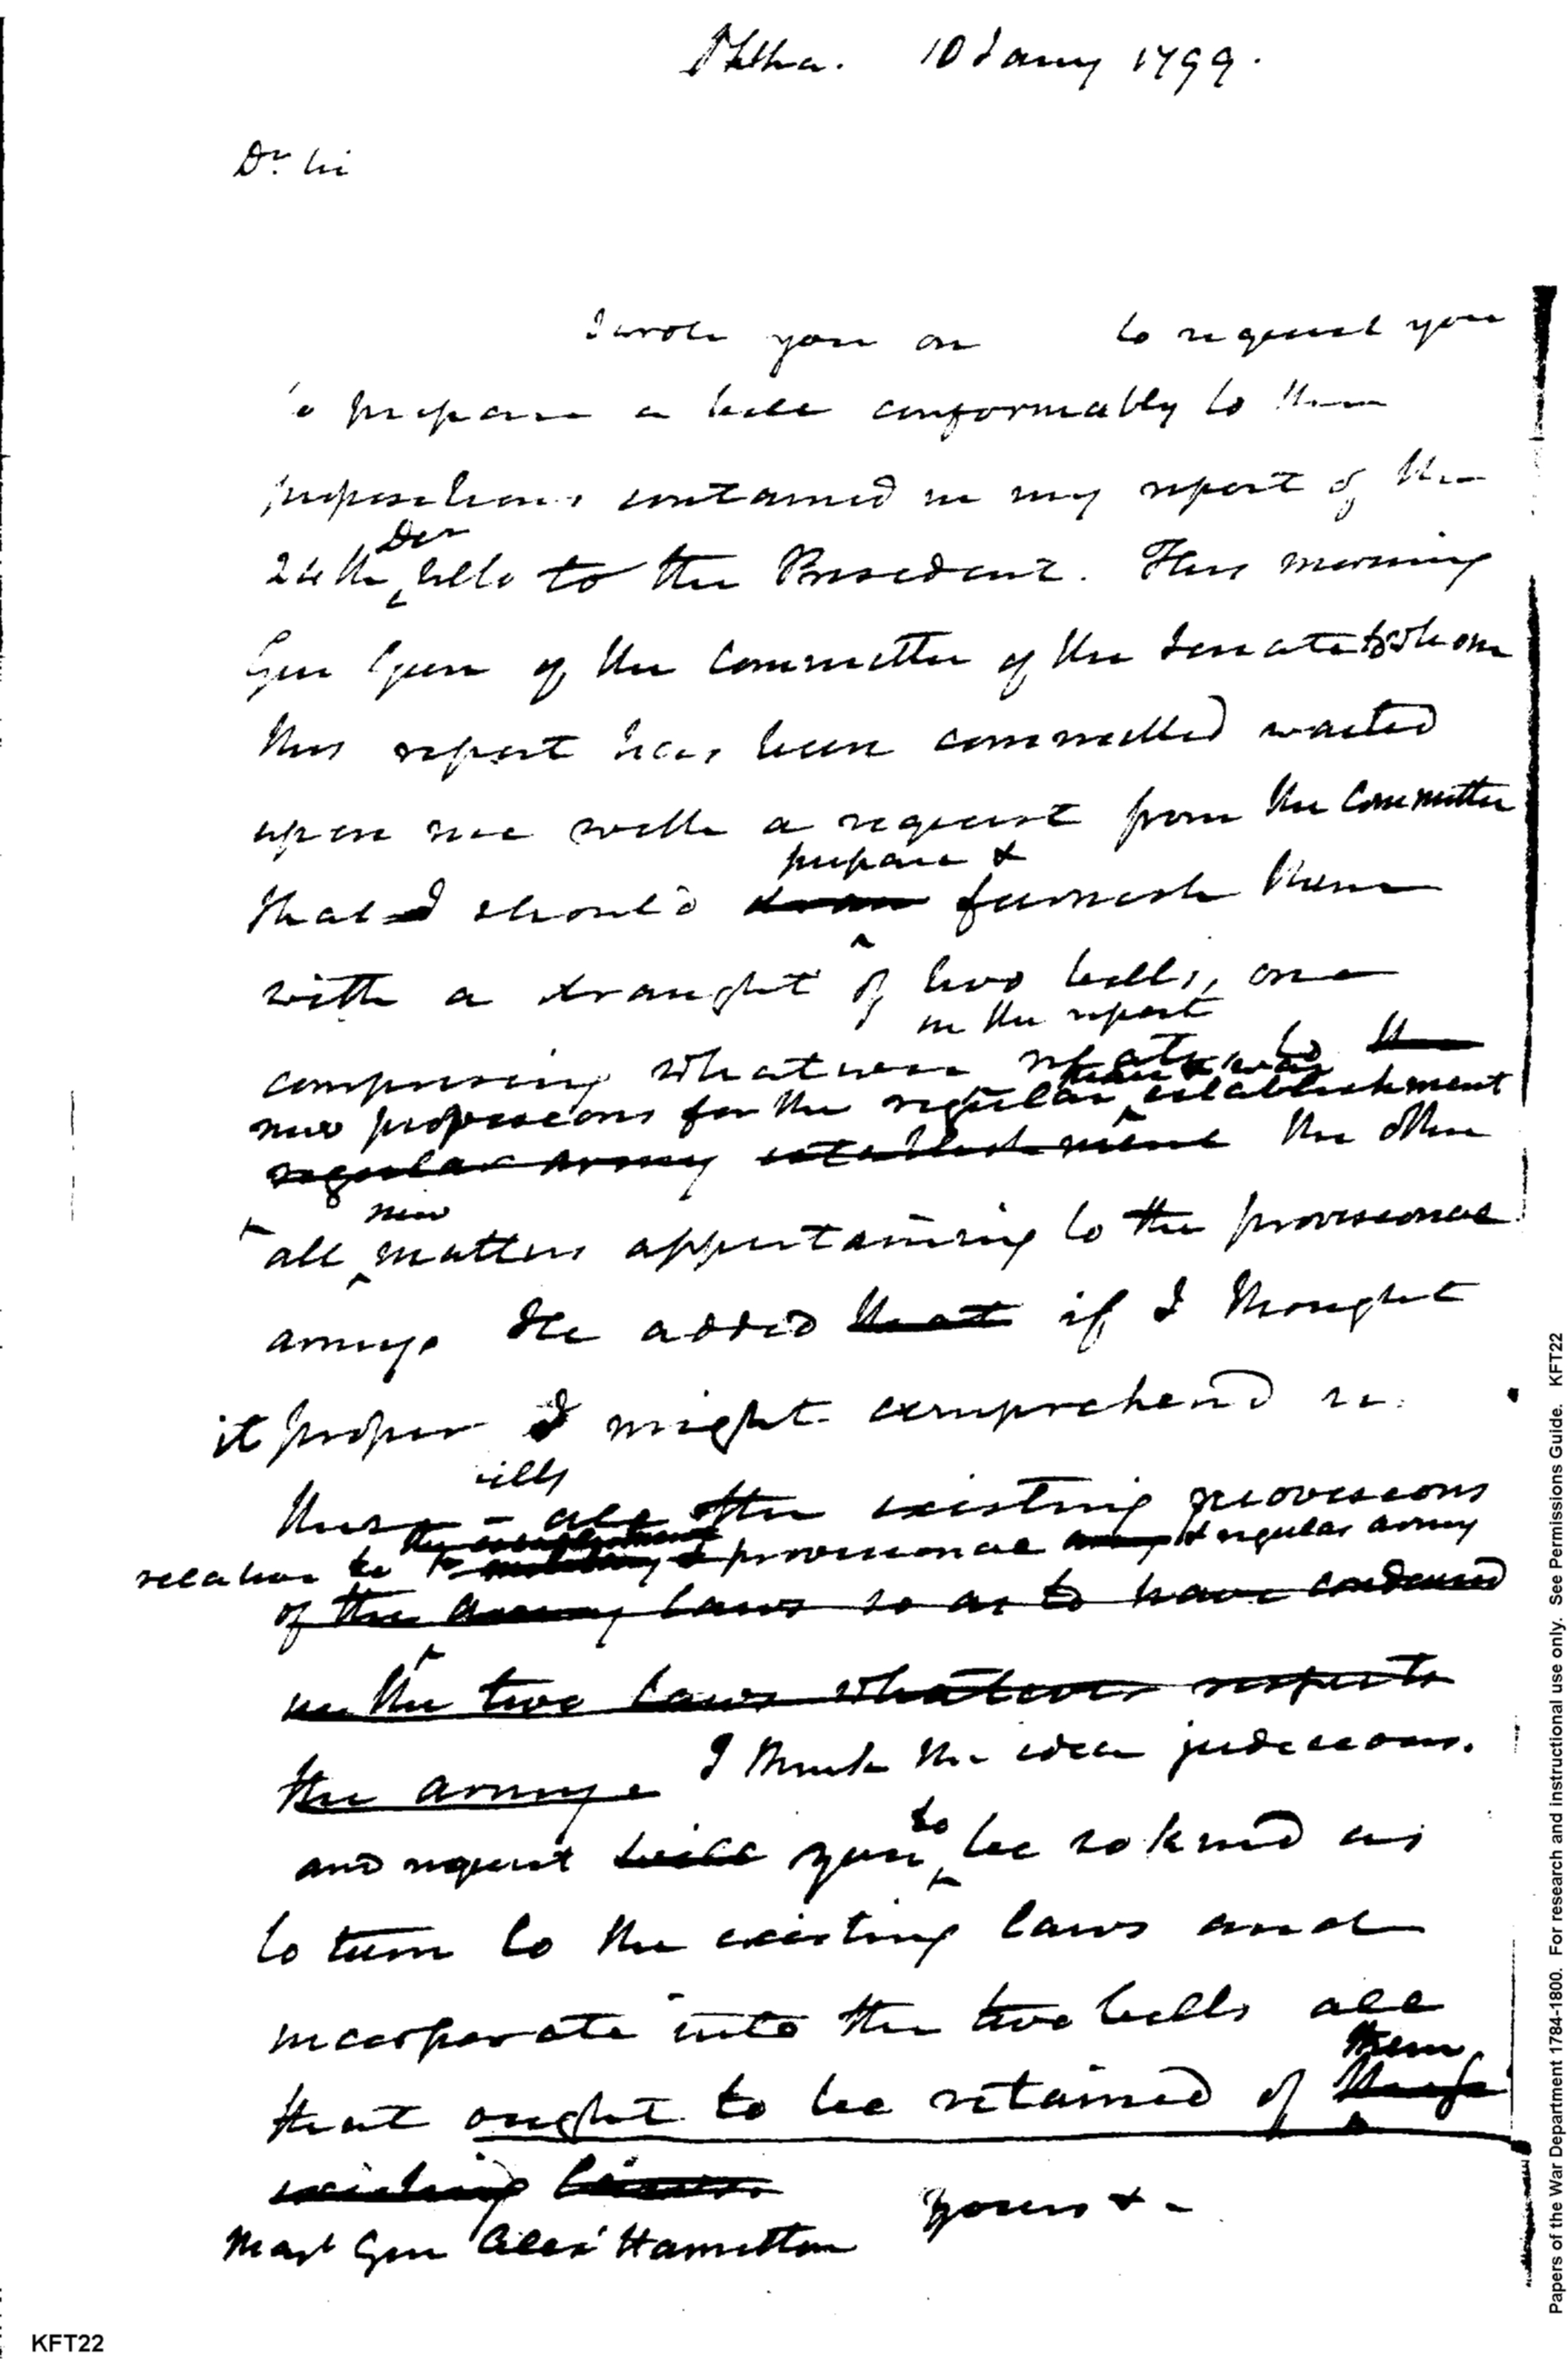 Phila. 10 Jany 1799.
Dr. Sir
I wrote you on to request you
to prepare a bill conformably to the
propositions contained in my report of the
Decr
24th ulto to the President. This morning
Gen Gunn of the Committee of the Senate to whom
this report has been committed waited
upon me with a request from the Committee
prepare &
that I should draw furnish them
with a draught of two bills, one
in the report
comprising whatever relates to the
new provisions for the regular establishment
regular army establishment the other
new
all matters appertaining to the provisional
army. He added that if I thought
it proper I might comprehend in
bills
these all the existing provisions
relative to the provisional army & regular army
of the army laws so as to have condensed
in the two laws whatever respects
the army. I think the idea judicious.
to
and request will you be so kind as
to turn to the existing laws and
incorporate into the two bills all
them
that ought to be retained of these
existing laws
Yours &
Majr Gen Alexr Hamilton
KFT22
Papers of the War Department 1784-1800. For research and instructional use only. See Permissions Guide. KFT22